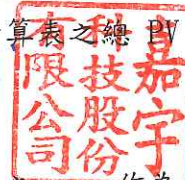 算表之總 PV
嘉宇
科技股份
有限公司